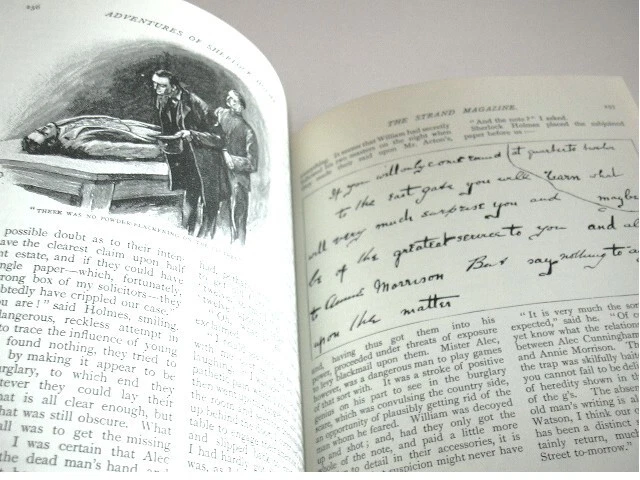 256
ADVENTURES OF SHERLOCK HOLMES
"THERE WAS NO POWDER-BLACKENING
possible doubt as to their inten
ave the clearest claim upon half
nt estate, and if they could have
ngle paper—which, fortunately,
rong box of my solicitors—they
btedly have crippled our case."
ou are!" said Holmes, smiling.
dangerous, reckless attempt in
to trace the influence of young
found nothing, they tried to
by making it appear to be
urglary, to which end they
tever they could lay their
that is all clear enough, but
that was still obscure. What
all was to get the missing
I was certain that Alec
the dead man's hand, and
had
with
then
want
the
up behind
table to
and slipped back
I had hardly
was, as I
THE STRAND MAGAZINE.
It seems that William had secretly
his two masters on the night when
they made their raid upon Mr. Acton's,
"And the note?" I asked.
Sherlock Holmes placed the subjoined
paper before us—
If you will only come round at quarter to twelve
to the east gate you will learn what
will very much surprise you and maybe
be of the greatest service to you and al
to Annie Morrison But say nothing to a
upon the matter
and, having thus got them into his
power, proceeded under threats of exposure
to levy blackmail upon them. Mister Alec,
however, was a dangerous man to play games
of that sort with. It was a stroke of positive
genius on his part to see in the burglary
scare, which was convulsing the country side,
an opportunity of plausibly getting rid of the
man whom he feared. William was decoyed
up and shot; and, had they only got the
whole of the note, and paid a little more
attention to detail in their accessories, it is
suspicion might never have
"It is very much the sor
expected," said he. "Of co
yet know what the relation
between Alec Cunningham
and Annie Morrison. The
the trap was skilfully baite
you cannot fail to be deli
of heredity shown in th
of the g's. The absen
old man's writing is al
Watson, I think our
has been a distinct s
tainly return, much
Street to-morrow."